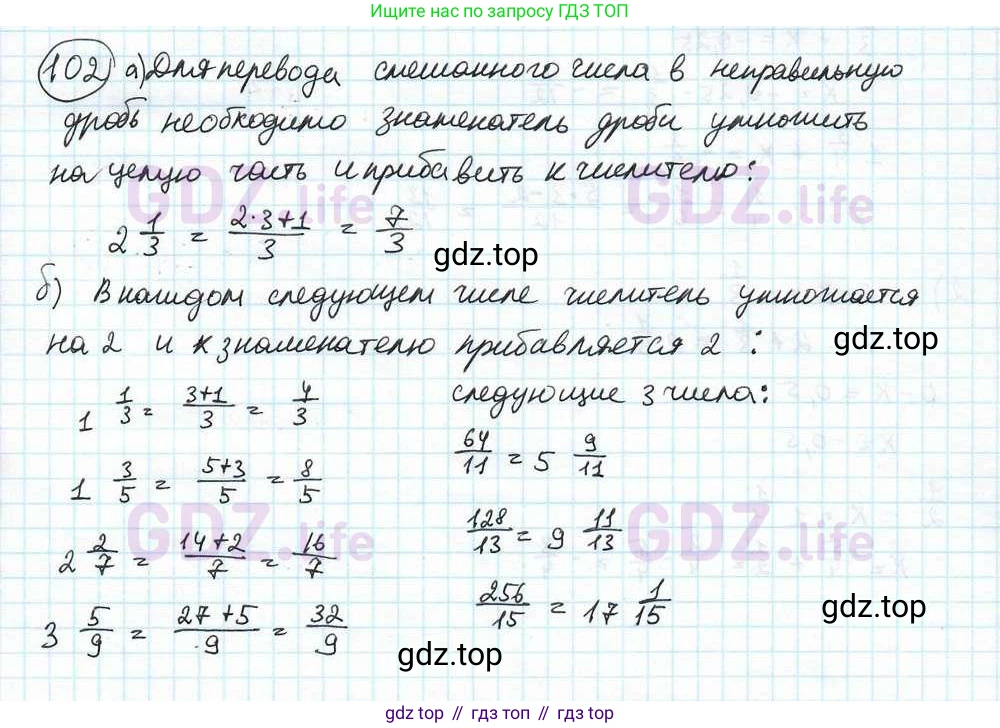 Ищите ответ по запросу ГДЗ ТОП
102 а) Для перевода смешанного числа в неправильную
дробь необходимо знаменатель дроби умножить
на целую часть и прибавить к числителю:
GDZ.life GDZ.life
2 1/3 = 2·3+1/3 = 7/3
gdz.top
б) В каждом следующем числе числитель умножается
на 2 и к знаменателю прибавляется 2:
gdz.top
1 1/3 = 3+1/3 = 4/3
1 3/5 = 5+3/5 = 8/5
2 2/7 = 14+2/7 = 16/7
3 5/9 = 27+5/9 = 32/9
следующие 3 числа:
64/11 = 5 9/11
128/13 = 9 11/13
256/15 = 17 1/15
GDZ.life GDZ.life
gdz.top
gdz.top
gdz top // гдз топ // gdz top